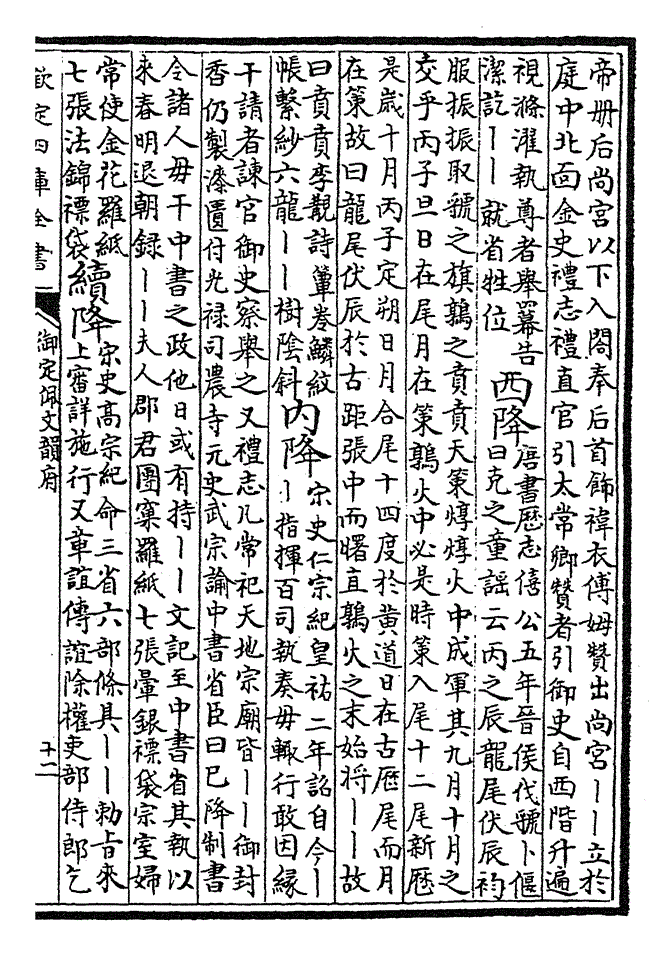 帝册后尚宫以下入閤奉后首飾褘衣傅姆贊出尚宫丨丨立於
庭中北面金史禮志禮直官引太常卿贊者引御史自西階升遍
視滌濯執尊者舉冪告
潔訖丨丨就省牲位
西降
唐書歴志僖公五年晉侯伐虢卜偃
曰克之童謡云丙之辰龍尾伏辰袀
服振振取虢之旗鶉之賁賁天策焞焞火中成軍其九月十月之
交乎丙子旦日在尾月在策鶉火中必是時策入尾十二尾新歴
是歲十月丙子定朔日月合尾十四度於黄道日在古歴尾而月
在策故曰龍尾伏辰於古距張中而曙直鶉火之末始將丨丨故
曰賁賁李覯詩簟巻鱗紋
帳繫紗六龍丨丨樹陰斜
內降
宋史仁宗紀皇祐二年詔自今丨
丨指揮百司執奏毋輙行敢因縁
干請者諫官御史察舉之又禮志凡常祀天地宗廟皆丨丨御封
香仍製漆匱付光禄司農寺元史武宗論中書省臣曰已降制書
令諸人毋干中書之政他日或有持丨丨文記至中書省其執以
來春明退朝録丨丨夫人郡君團窠羅紙七張暈銀褾袋宗室婦
常使金花羅紙
七張法錦褾袋
續降
宋史高宗紀命三省六部條具丨丨勅旨來
上審詳施行又章誼傳誼除權吏部侍郎乞
欽定四庫全書
御定佩文韻府
十二